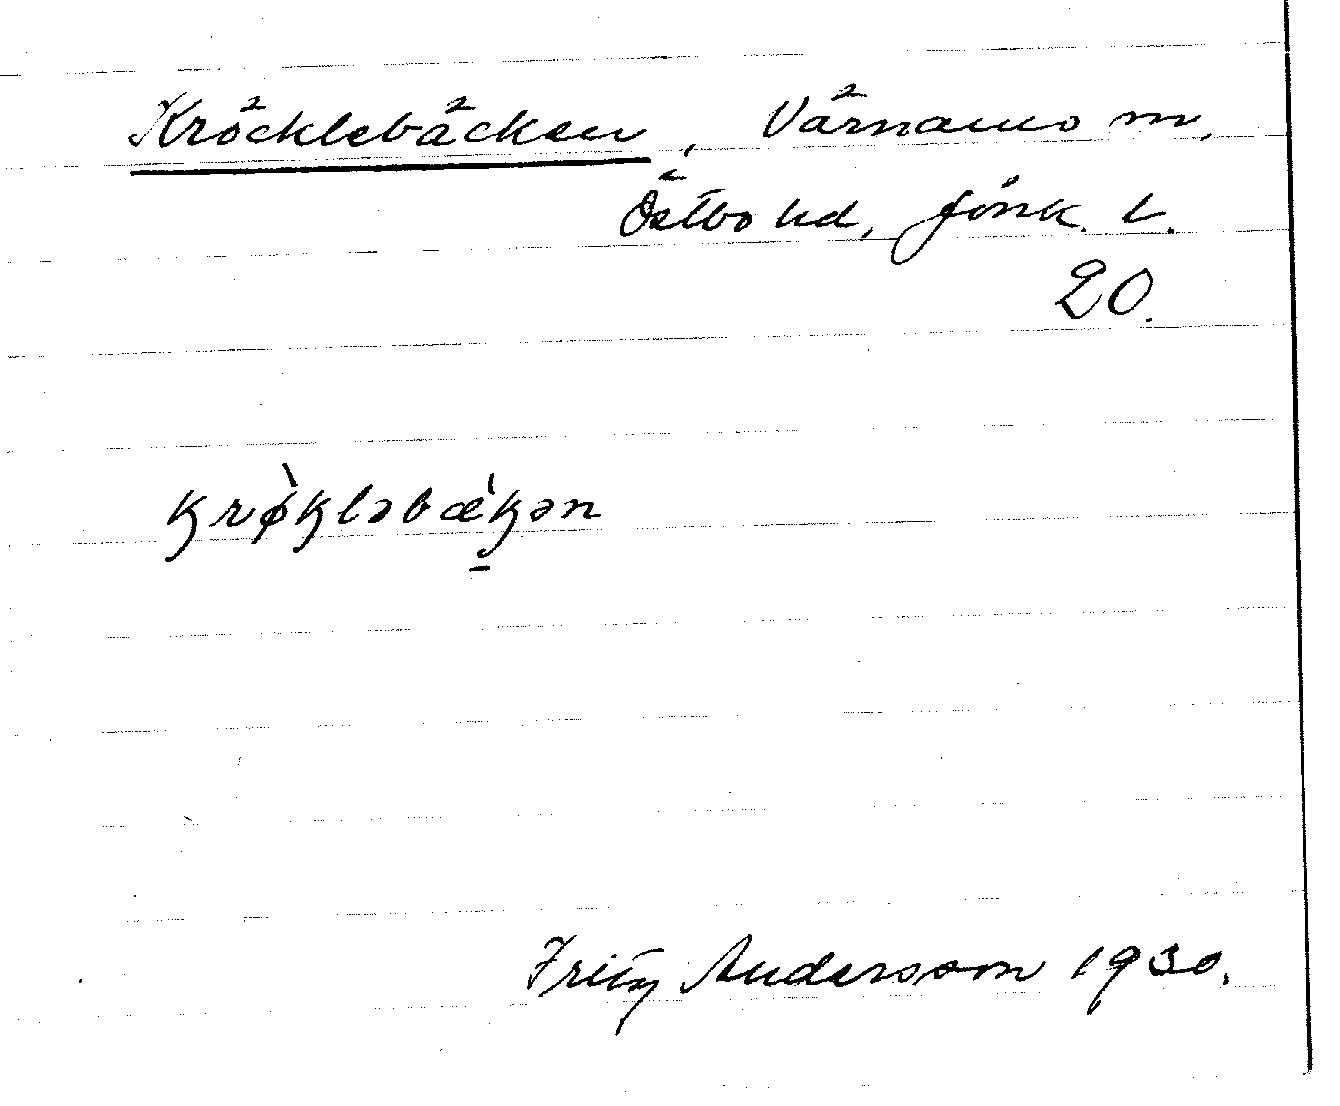 Kröcklebäcken, Värnamo m,
Östbo hd, Jönk. l.
20.
krø̀kləbæ̀kən
Fritz Andersson 1930.